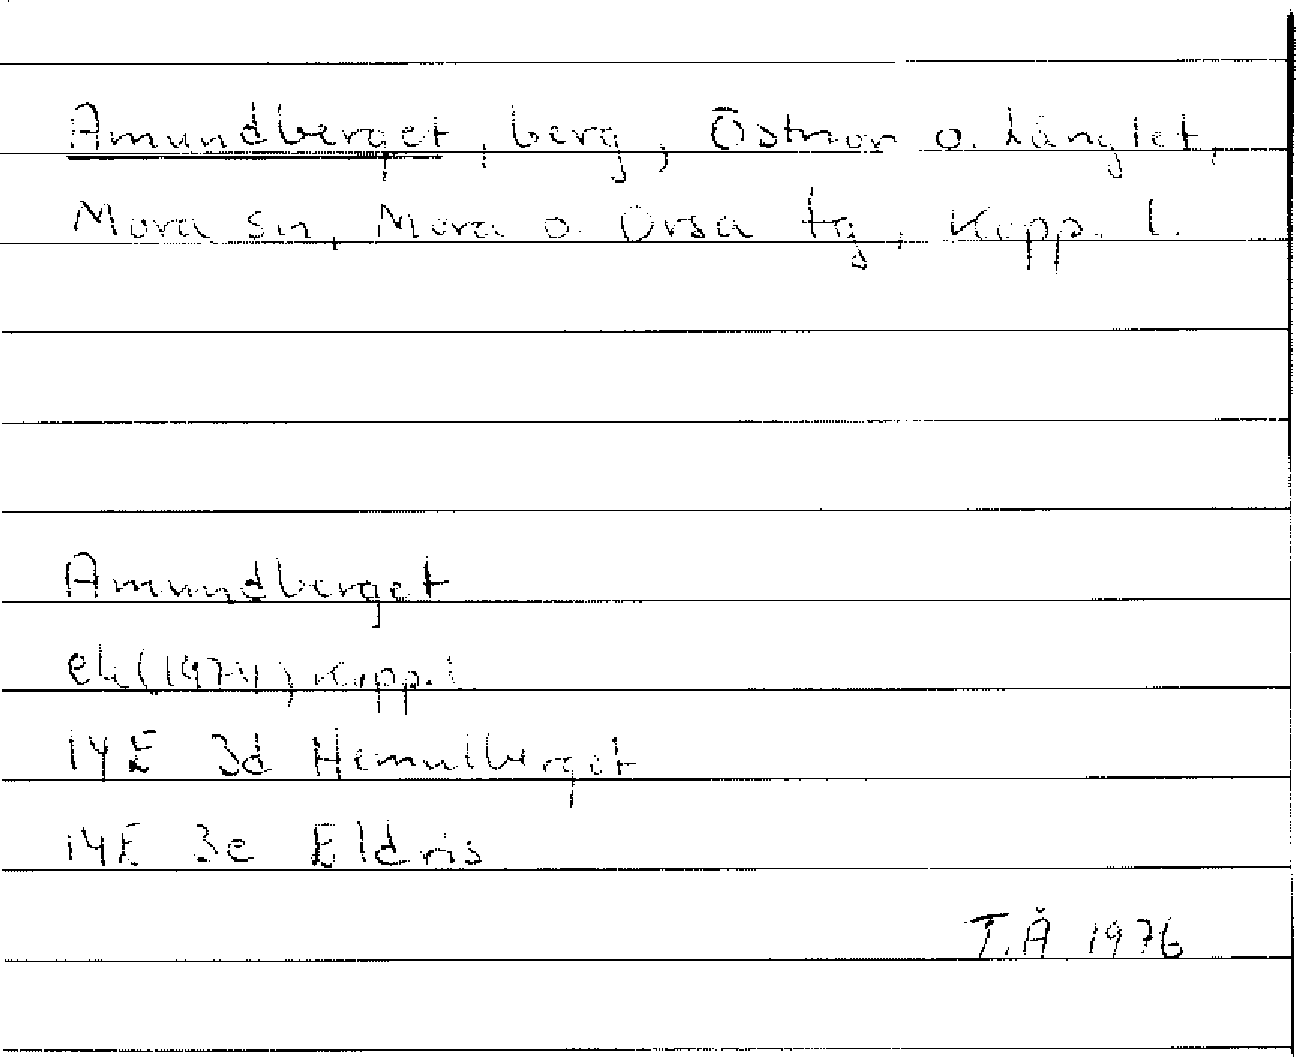 Amundberget, berg, Östnor o. Långlet,
Mora sn, Mora o. Orsa tg, Kopp. l.
Amundberget
ek (1974) Kopp. l
14E 3d Hemulberget
14E 3e Eldris
T.Å 1976